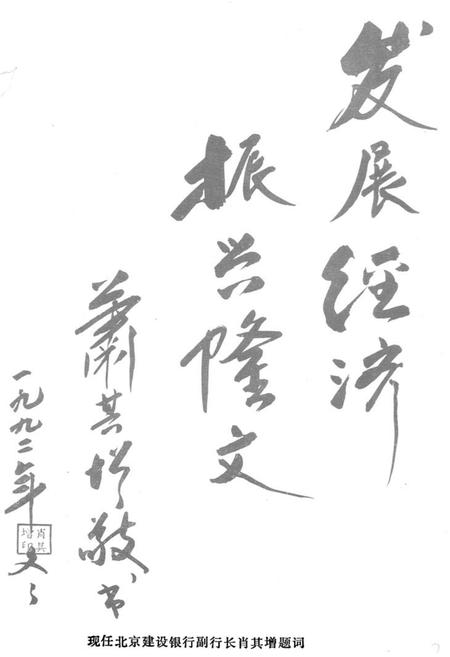 发展經济
振兴隆文
萧其增敬书
一九九二年冬
肖其增印
现任北京建设银行副行长肖其增题词